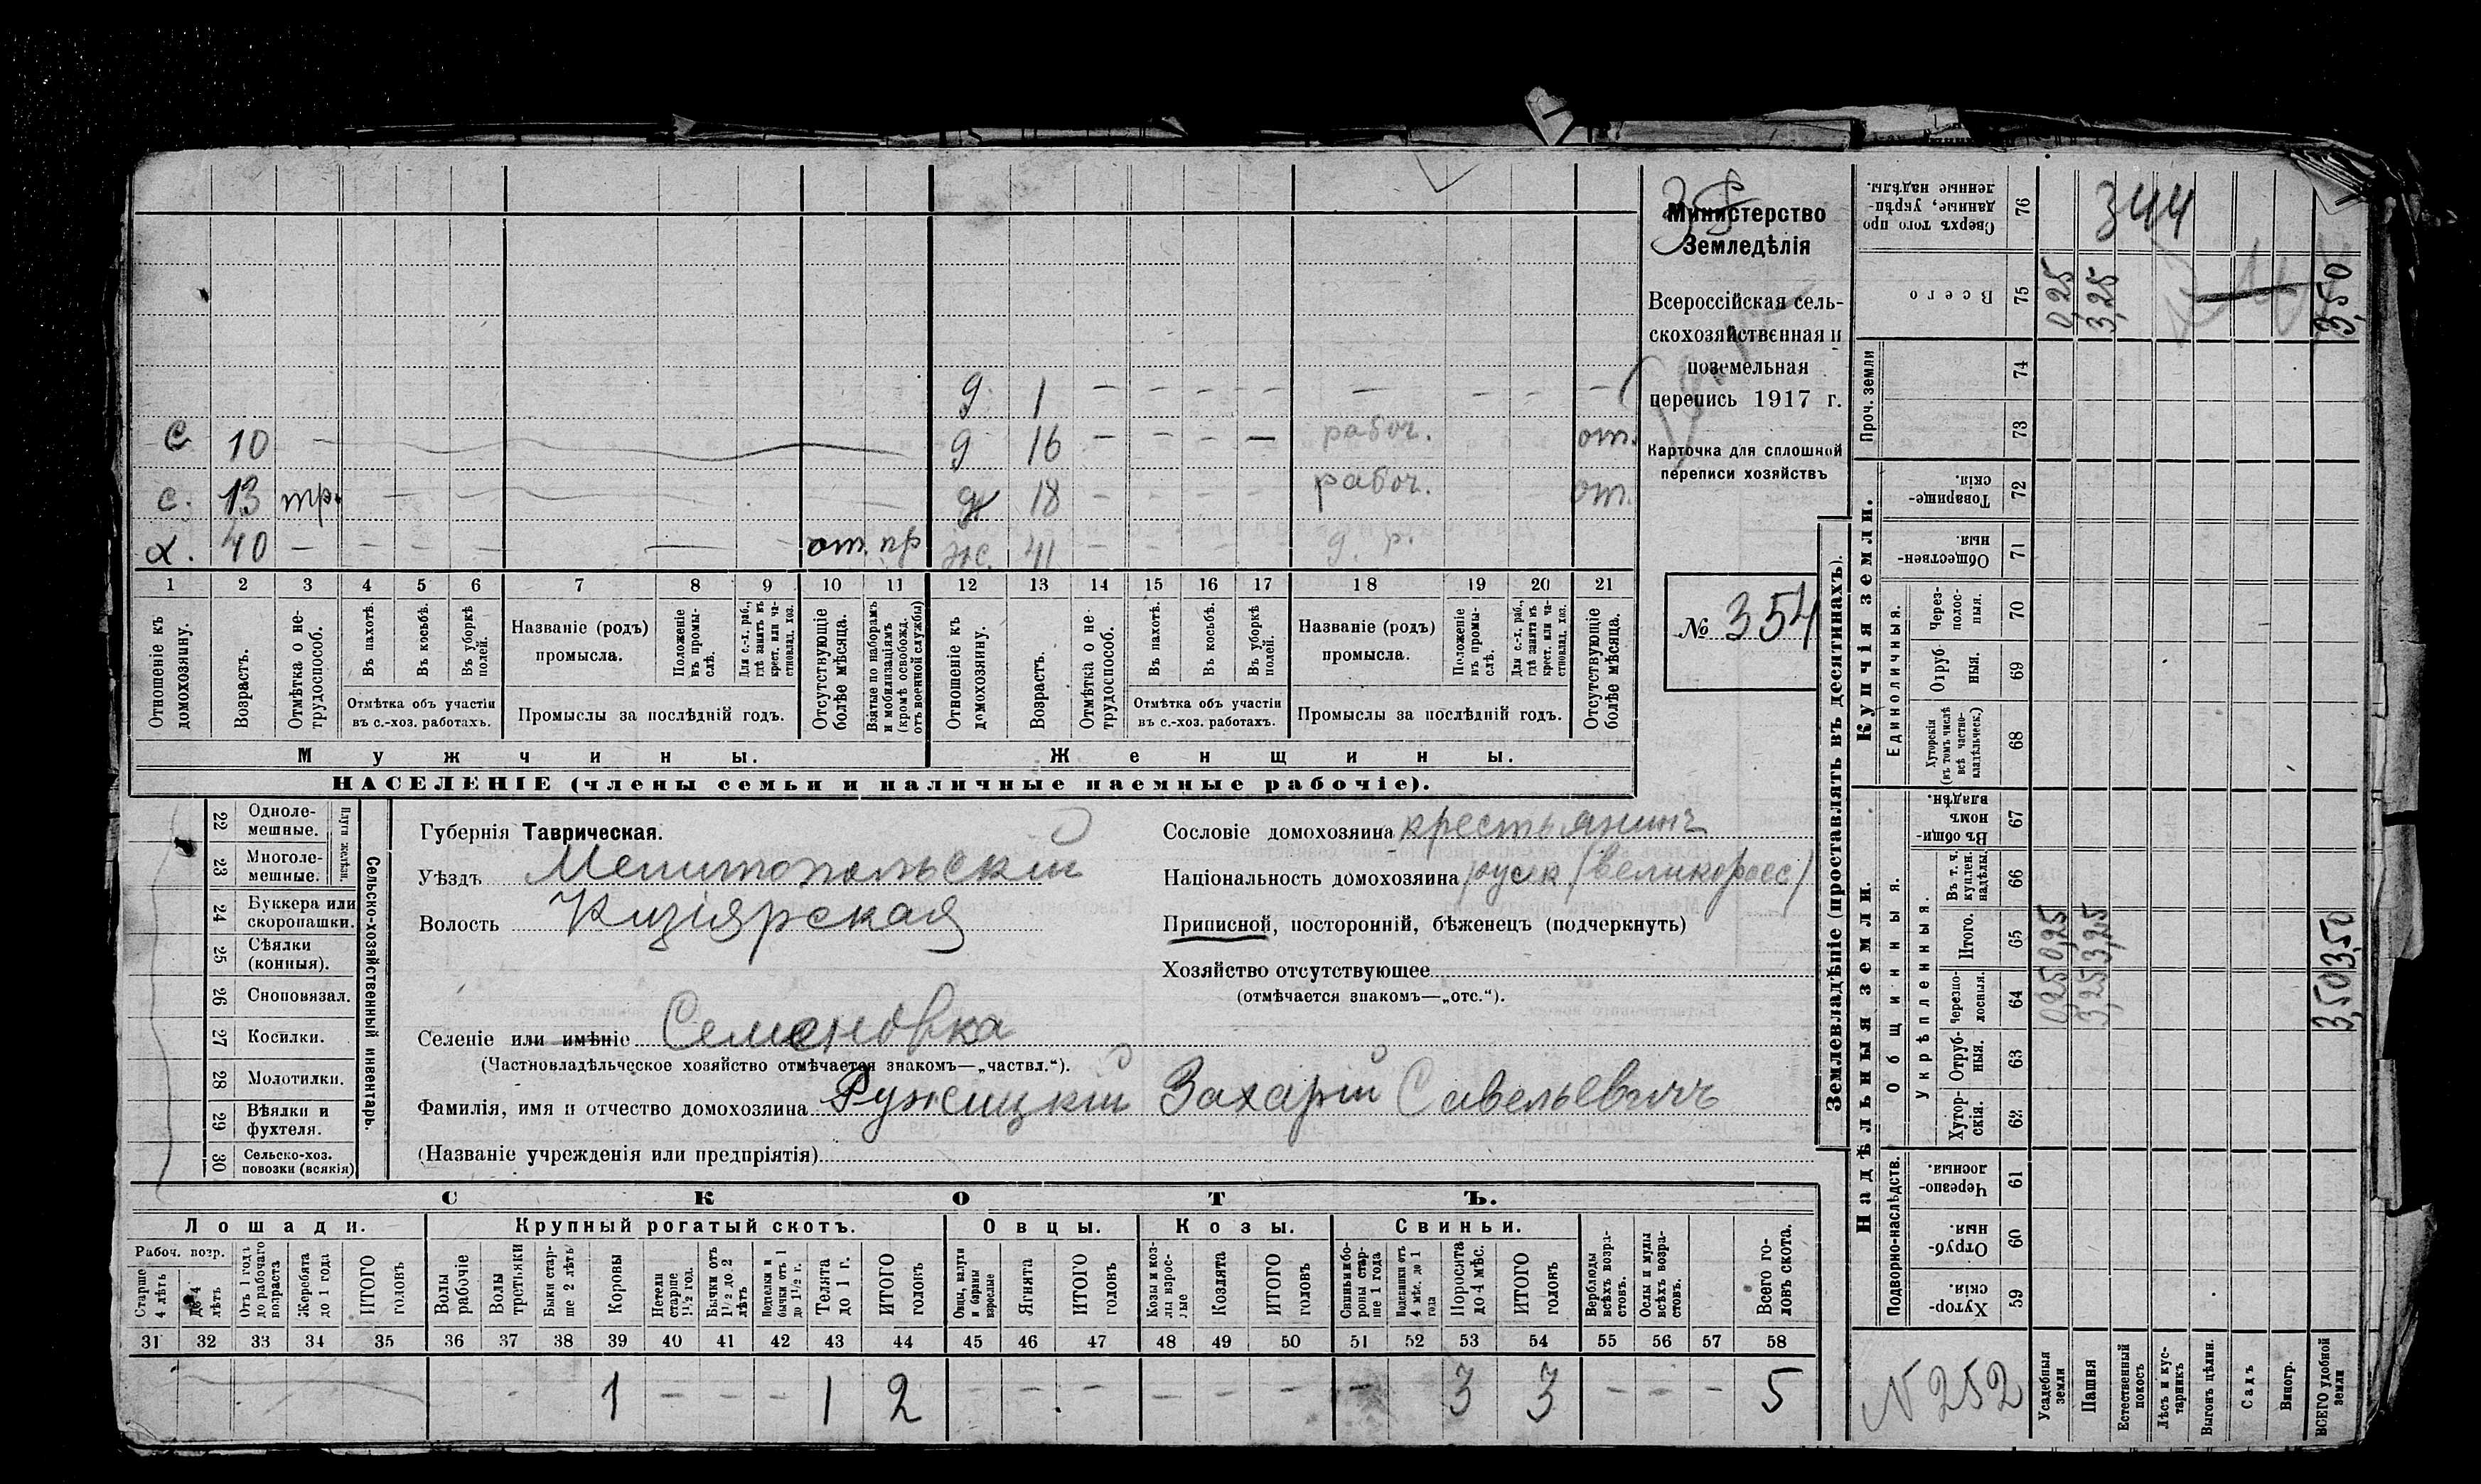 д. 1 — — — — — — — — —
с 10 — д 16 — — — — рабоч. от.
с. 13 тр. — — — — — д 18 — — — — рабоч. от.
х. 40 — — — — — — — от. пр ж. 41 — — — — д. р.
1 2 3 4 5 6 7 8 9 10 11 12 13 14 15 16 17 18 19 20 21
Отношеніе къ домохозяину.
Возрастъ.
Отмѣтка о не-трудоспособ.
Въ пахотѣ.
Въ косьбѣ.
Въ уборкѣ полей.
Отмѣтка объ участіи въ с.-хоз. работахъ.
Названіе (родъ) промысла.
Положеніе въ промы-слѣ.
Для с.-х. раб., гдѣ занятъ въ крест. или ча-стновлад. хоз.
Промыслы за послѣдній годъ.
Отсутствующіе болѣе мѣсяца.
Взятые по наборамъ и мобилизаціямъ (кромѣ освобожд. отъ военной службы)
Отношеніе къ домохозяину.
Возрастъ.
Отмѣтка о не-трудоспособ.
Въ пахотѣ.
Въ косьбѣ.
Въ уборкѣ полей.
Отмѣтка объ участіи въ с.-хоз. работахъ.
Названіе (родъ) промысла.
Положеніе въ промы-слѣ.
Для с.-х. раб., гдѣ занята въ крест. или ча-стновлад. хоз.
Промыслы за послѣдній годъ.
Отсутствующіе болѣе мѣсяца.
Мужчины. Женщины.
НАСЕЛЕНІЕ (члены семьи и наличные наемные рабочіе).
Министерство
Земледѣлія
Всероссійская сель-
скохозяйственная и
поземельная
перепись 1917 г.
Карточка для сплошной
переписи хозяйствъ
№ 354
22 Одноле-мешные.
23 Многоле-мешные.
Плуги желѣзн.
24 Буккера или скоропашки.
25 Сѣялки (конныя).
26 Сноповязал.
27 Косилки.
28 Молотилки.
29 Вѣялки и фухтеля.
30 Сельско-хоз. повозки (всякія)
Сельско-хозяйственный инвентарь.
Губернія Таврическая.
Уѣздъ Мелитопольскій
Волость Кизіярская
Селеніе или имѣніе Семеновка
(Частновладѣльческое хозяйство отмѣчается знакомъ—„частвл.“).
Фамилія, имя и отчество домохозяина Ружицкій Захарій Савельевичъ
(Названіе учрежденія или предпріятія)
Сословіе домохозяина крестьянинъ
Національность домохозяина русск (великоросс)
Приписной, посторонній, бѣженецъ (подчеркнуть)
Хозяйство отсутствующее
(отмѣчается знакомъ—„отс.“).
СКОТЪ.
Лошади. Крупный рогатый скотъ. Овцы. Козы. Свиньи.
Рабоч. возр.
Старше 4 лѣтъ
до 4 лѣтъ
Отъ 1 года до рабочаго возраста
Жеребята до 1 года
ИТОГО головъ
Волы рабочіе
Волы третьяки
Быки стар-ше 2 лѣтъ
Коровы
Нетели старше 1½ год.
Бычки отъ 1½ до 2 лѣтъ
Телки и бычки отъ 1 до 1½ г.
Телята до 1 г.
ИТОГО головъ
Овцы, валухи и бараны взрослые
Ягнята
ИТОГО головъ
Козы и коз-лы взрос-лые
Козлята
ИТОГО головъ
Свиньи и бо-ровы стар-ше 1 года
Подсвинки отъ 4 мѣс. до 1 года
Поросята до 4 мѣс.
ИТОГО головъ
Верблюды всѣхъ возра-стовъ.
Ослы и мулы всѣхъ возра-стовъ.
Всего го-ловъ скота.
31 32 33 34 35 36 37 38 39 40 41 42 43 44 45 46 47 48 49 50 51 52 53 54 55 56 57 58
1 — — — 1 2 — — — — — — — 3 3 — — — 5
Землевладѣніе (проставлять въ десятинахъ).
344
Сверхъ того про-данные, укрѣп-ленные надѣлы. 76
Всего 75 0,25 3,25 3,50
Проч. земли 74 73
Купчія земли.
Товарище-скія. 72
Обществен-ныя. 71
Единоличныя.
Через-полос-ныя. 70
Отруб-ныя. 69
Хуторскія (въ томъ числѣ всѣ частно-владѣльческ.) 68
Надѣльныя земли.
Общинныя.
Въ общин-номъ владѣн. 67
Укрѣпленныя.
Въ т. ч. куплен. надѣлы. 66
Итого. 65 0,25 3,25 3,50
Черезпо-лосныя. 64 0,25 3,25 3,50
Отруб-ныя. 63
Хутор-скія. 62
Подворно-наслѣдств.
Черезпо-лосныя. 61
Отруб-ныя. 60
Хутор-скія. 59
N 252
Усадебныя земли
Пашня
Естественный покосъ
Лѣсъ и кус-тарникъ
Выгонъ цѣлин.
Садъ
Виногр.
ВСЕГО удобной земли